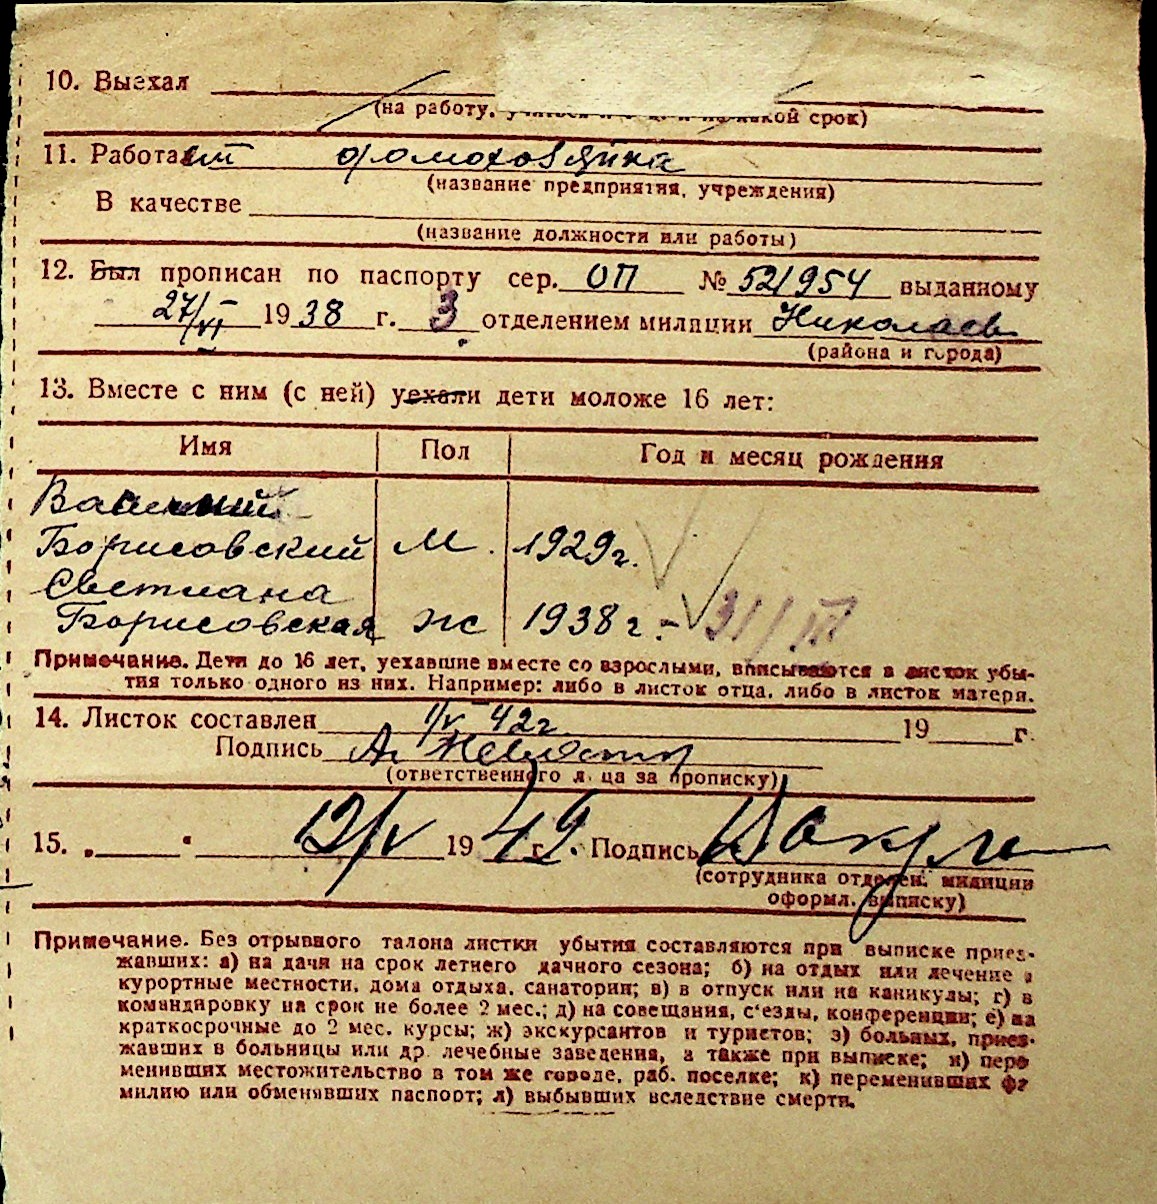 10. Выехал
(на работу, какой срок)
11. Работает домохозяйка
(название предприятия, учреждения)
В качестве
(название должности или работы)
12. Был прописан по паспорту сер. ОП № 521954 выданному
27/VI 1938 г. 3 отделением милиции Николаев
(района и города)
13. Вместе с ним (с ней) уехали дети моложе 16 лет:
Имя Пол Год и месяц рождения
Василий
Борисовский М. 1929г.
Светлана
Борисовская Ж 1938 г. - 31/III
Примечание. Дети до 16 лет, уехавшие вместе со взрослыми, вписываются в листок убы-
тия только одного из них. Например: либо в листок отца, либо в листок матери.
14. Листок составлен 1/V 42г. 19 г.
Подпись
(ответственного лица за прописку)
15. „ " 12/V 1942 г. Подпись
(сотрудника отделен. милиции
оформл. выписку)
Примечание. Без отрывного талона листки убытия составляются при выписке приез-
жавших: а) на дачи на срок летнего дачного сезона; б) на отдых или лечение в
курортные местности, дома отдыха, санатории; в) в отпуск или на каникулы; г) в
командировку на срок не более 2 мес.; д) на совещания, с'езды, конференции; е) на
краткосрочные до 2 мес. курсы; ж) экскурсантов и туристов; з) больных, приез-
жавших в больницы или др. лечебные заведения, а также при выписке; и) пере
менивших местожительство в том же городе, раб. поселке; к) переменивших фа
милию или обменявших паспорт; л) выбывших вследствие смерти.